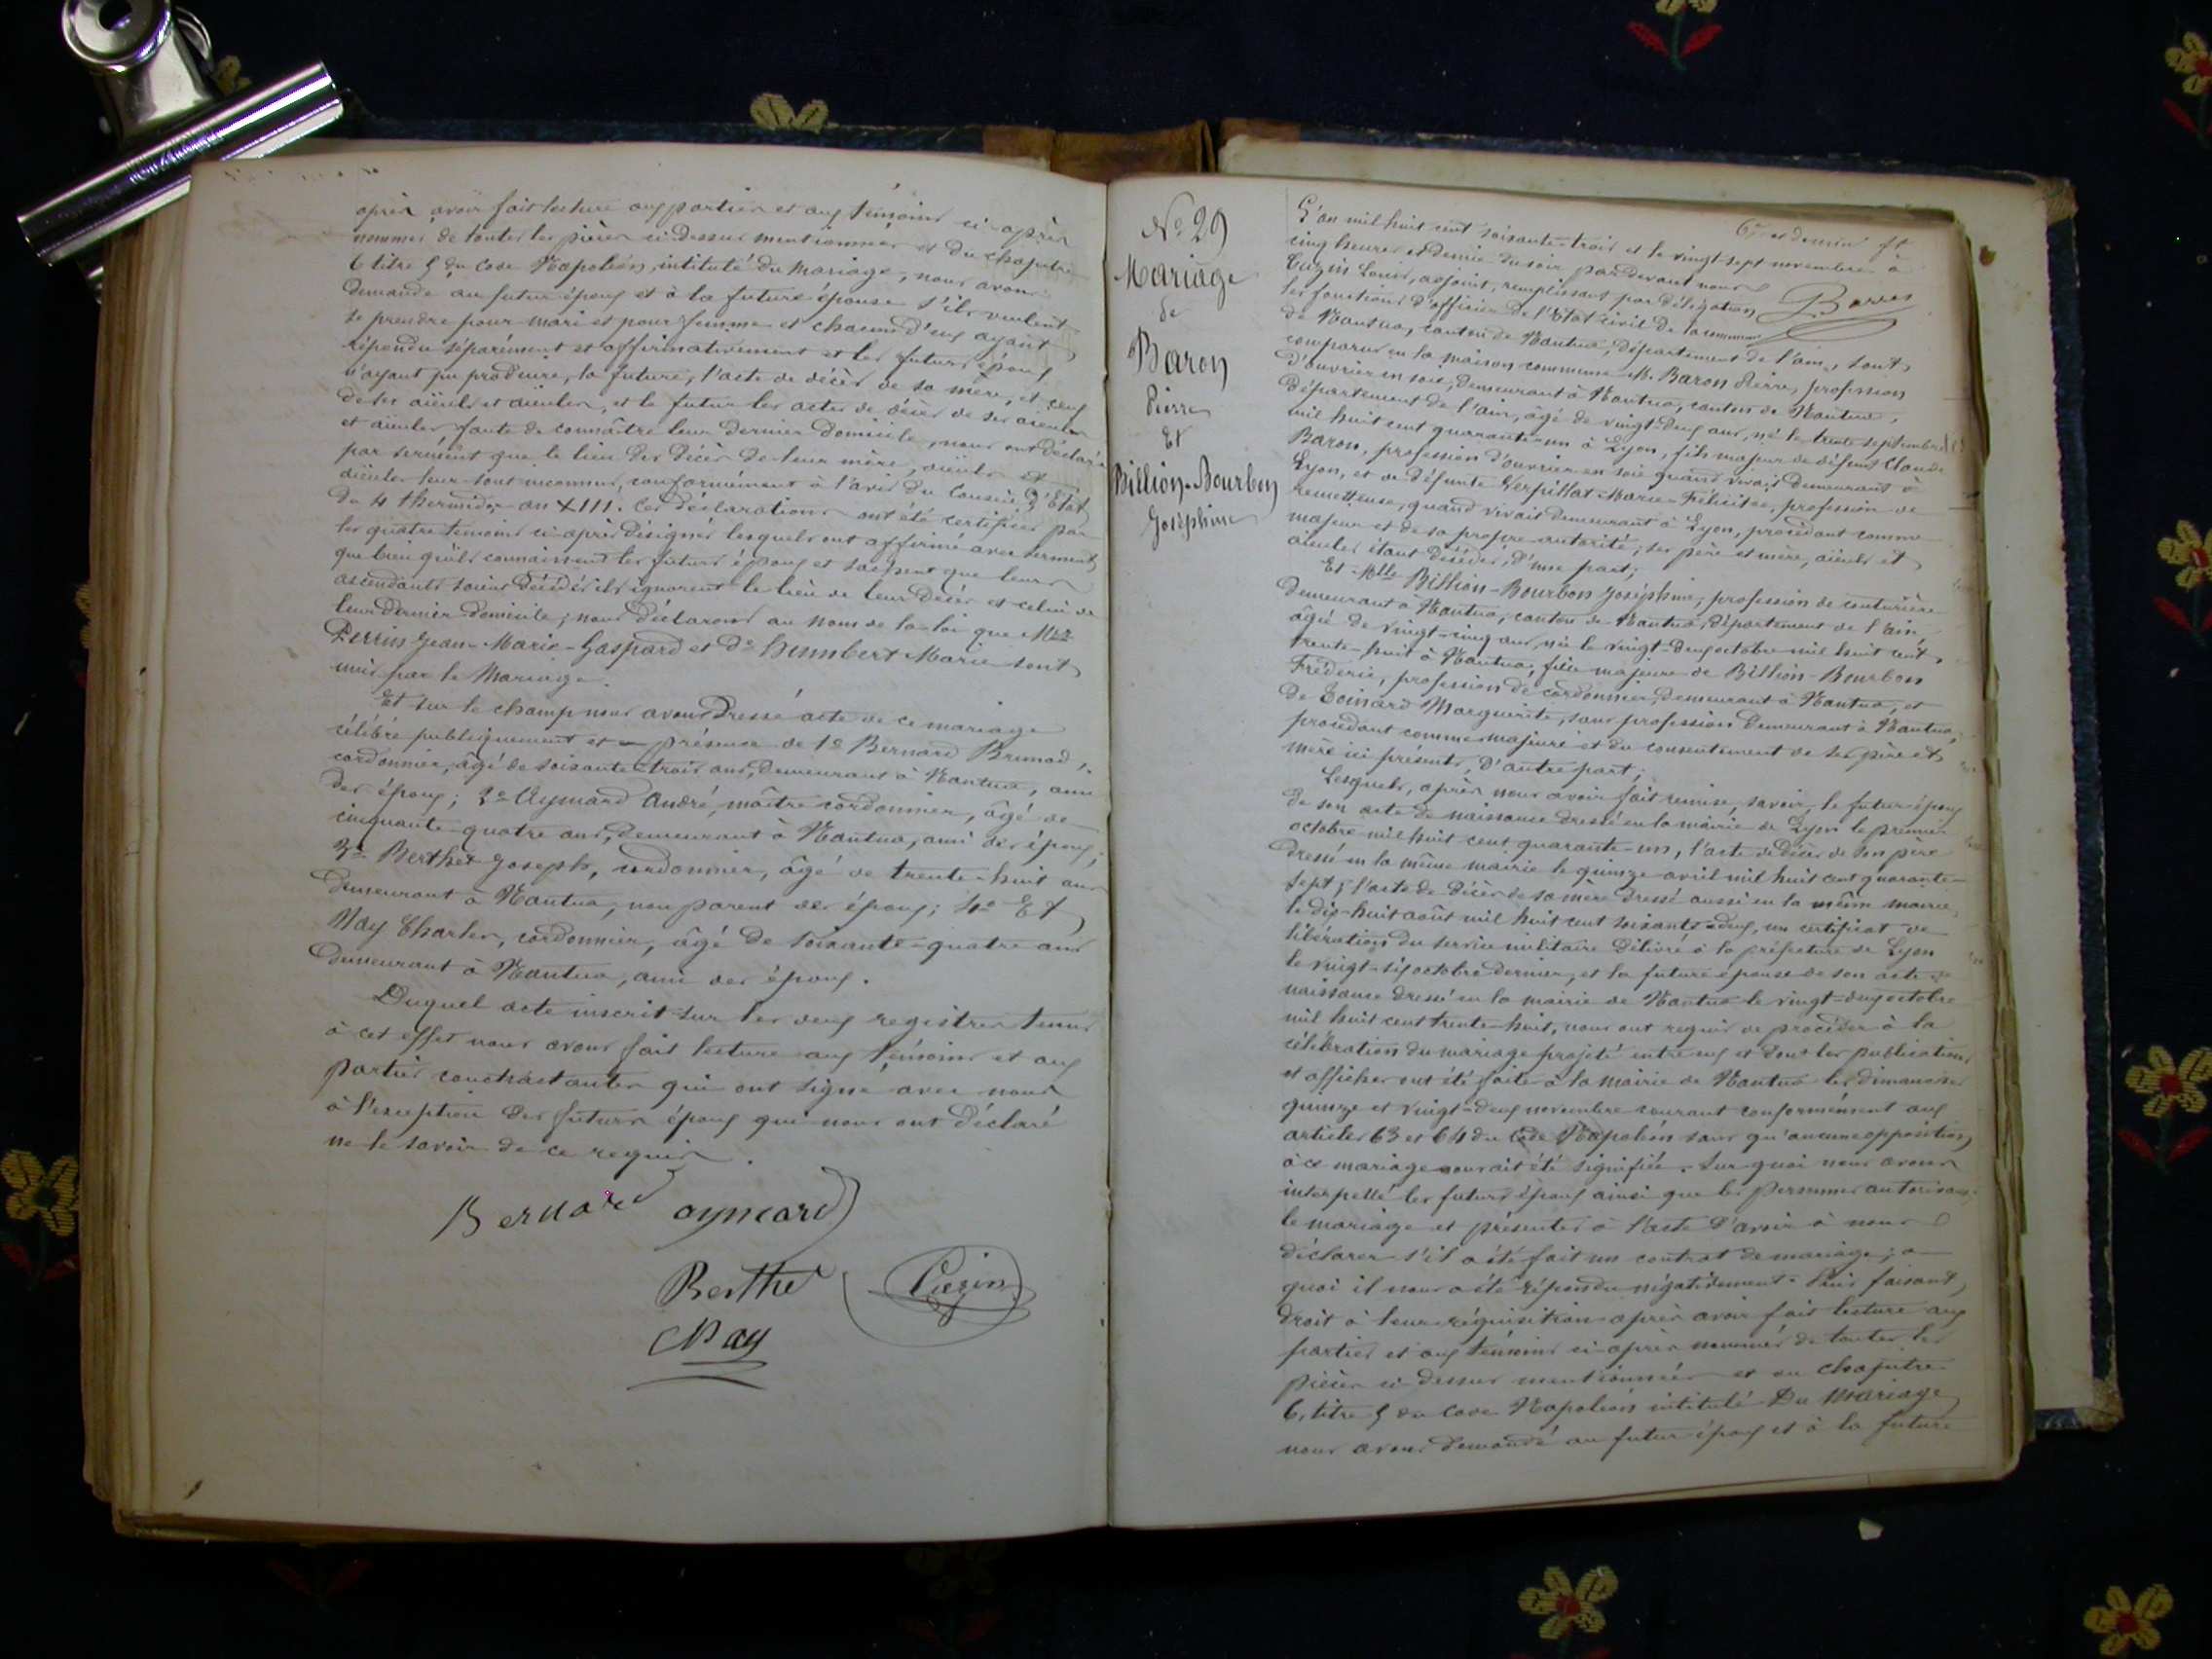 après avoir fait lecture aux parties et aux témoins ci-après
nommés de toutes les pièces ci-dessus mentionnées et du chapitre
6 titre 5 du Code Napoléon, intitulé du Mariage, nous avons
demandé au futur époux et à la future épouse s'ils veulent
se prendre pour mari et pour femme et chacun d'eux ayant
répondu séparément et affirmativement et les futurs époux
n'ayant pu produire, la future, l'acte de décès de sa mère, et ceux
de ses aïeuls et aïeules, et le futur les actes de décès de ses aïeuls
et aïeules, faute de connaître leur dernier domicile, nous ont déclaré
par serment que le lieu des décès de leur mère, aïeuls et
aïeules leur sont inconnus, conformément à l'avis du Conseil d'Etat
du 4 thermidor an XIII. Ces déclarations ont été certifiées par
les quatre témoins ci-après désignés lesquels ont affirmé avec serment
que bien qu'ils connaissent les futurs époux et sachent que leurs
ascendants soient décédés ils ignorent le lieu de leur décès et celui de
leur dernier domicile; nous déclarons au nom de la loi que
Perrin Jean-Marie-Gaspard et De Humbert Marie sont
unis par le Mariage.
Et sur le champ nous avons dressé acte de ce mariage
célébré publiquement et en présence de 1o Bernard Brunod,
cordonnier, âgé de soixante-trois ans, demeurant à Nantua, ami
des époux; 2o Aymard André, maître cordonnier, âgé de
cinquante-quatre ans, demeurant à Nantua, ami des époux;
3o Berthet Joseph, cordonnier, âgé de trente-huit ans
demeurant à Nantua, non parent des époux; 4o Et
May Charles, cordonnier, âgé de soixante-quatre ans
demeurant à Nantua, ami des époux.
Duquel acte inscrit sur les deux registres tenus
à cet effet nous avons fait lecture aux témoins et aux
parties contractantes qui ont signé avec nous
à l'exception des futurs époux qui nous ont déclaré
ne le savoir de ce requis.
Bernard aymard
Berthet Cuzin
May
No 29
Mariage
de
Baron
Pierre
Et
Billion-Bourbon
Joséphine
6e et dernier ft
Barres
L'an mil huit cent soixante-trois et le vingt-sept novembre à
cinq heures et demie du soir par devant nous
Cuzin Louis, adjoint, remplissant par délégation
les fonctions d'officier de l'Etat civil de la commune
de Nantua, canton de Nantua, département de l'ain, sont
comparus en la maison commune M. Baron Pierre, profession
d'ouvrier en soie, demeurant à Nantua, canton de Nantua,
département de l'ain, âgé de vingt-deux ans, né le trente septembre
mil huit cent quarante-un à Lyon, fils majeur de défunt Claude
Baron, profession d'ouvrier en soie quand vivait demeurant à
Lyon, et de défunte Verpillat Marie-Félicitée, profession de
remetteuse, quand vivait demeurant à Lyon, procédant comme
majeur et de sa propre autorité, ses père et mère, aïeuls et
aïeules étant décédés, d'une part;
Et Mlle Billion-Bourbon Joséphine, profession de couturière
demeurant à Nantua, canton de Nantua, département de l'ain,
âgée de vingt-cinq ans, née le vingt-deux octobre mil huit cent
trente-huit à Nantua, fille majeure de Billion-Bourbon
Fréderic, profession de cordonnier, demeurant à Nantua, et
de Coinard Marguerite, sans profession demeurant à Nantua,
procédant comme majeure et du consentement de ses père et
mère ici présents, d'autre part;
Lesquels, après nous avoir fait remise, savoir, le futur époux
de son acte de naissance dressé en la mairie de Lyon le premier
octobre mil huit cent quarante-un, l'acte de décès de son père
dressé en la même mairie le quinze avril mil huit cent quarante-
sept; l'acte de décès de sa mère dressé aussi en la même mairie
le dix-huit août mil huit cent soixante-deux, un certificat de
libération du service militaire délivré à la préfecture de Lyon
le vingt-six octobre dernier, et la future épouse de son acte de
naissance dressé en la mairie de Nantua le vingt-deux octobre
mil huit cent trente-huit, nous ont requis de procéder à la
célébration du mariage projeté entre eux et dont les publications
et affiches ont été faites à la mairie de Nantua les dimanches
quinze et vingt-deux novembre courant conformément aux
articles 63 et 64 du Code Napoléon sans qu'aucune opposition
à ce mariage nous ait été signifiée. Sur quoi nous avons
interpellé les futurs époux ainsi que les personnes autorisant
le mariage et présentes à l'acte d'avoir à nous
déclarer s'il a été fait un contrat de mariage; à
quoi il nous a été répondu négativement. Puis faisant
droit à leur réquisition après avoir fait lecture aux
parties et aux témoins ci-après nommés de toutes les
pièces ci-dessus mentionnées et du chapitre
6, titre 5 du Code Napoléon intitulé Du Mariage
nous avons demandé au futur époux et à la future